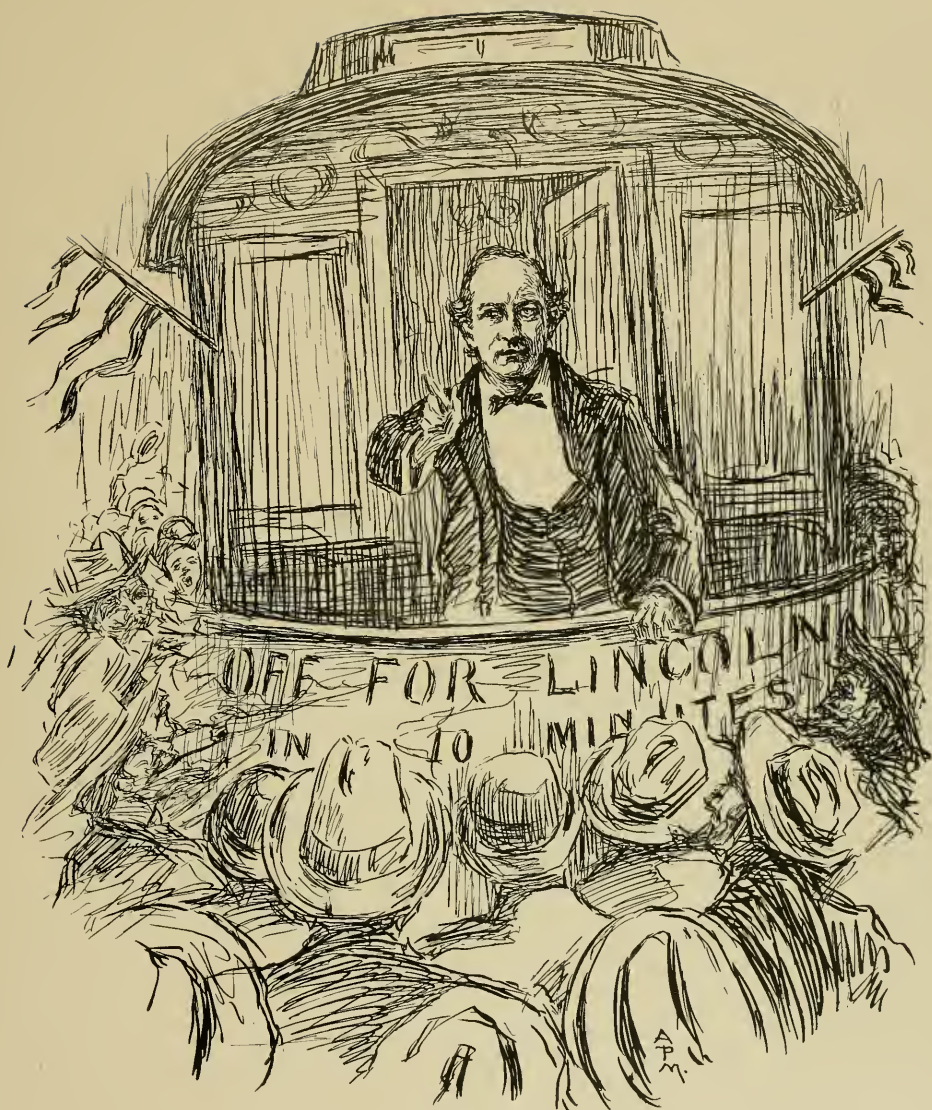 OFF FOR LINCOLN
IN 10 MINUTES
A
P
M.